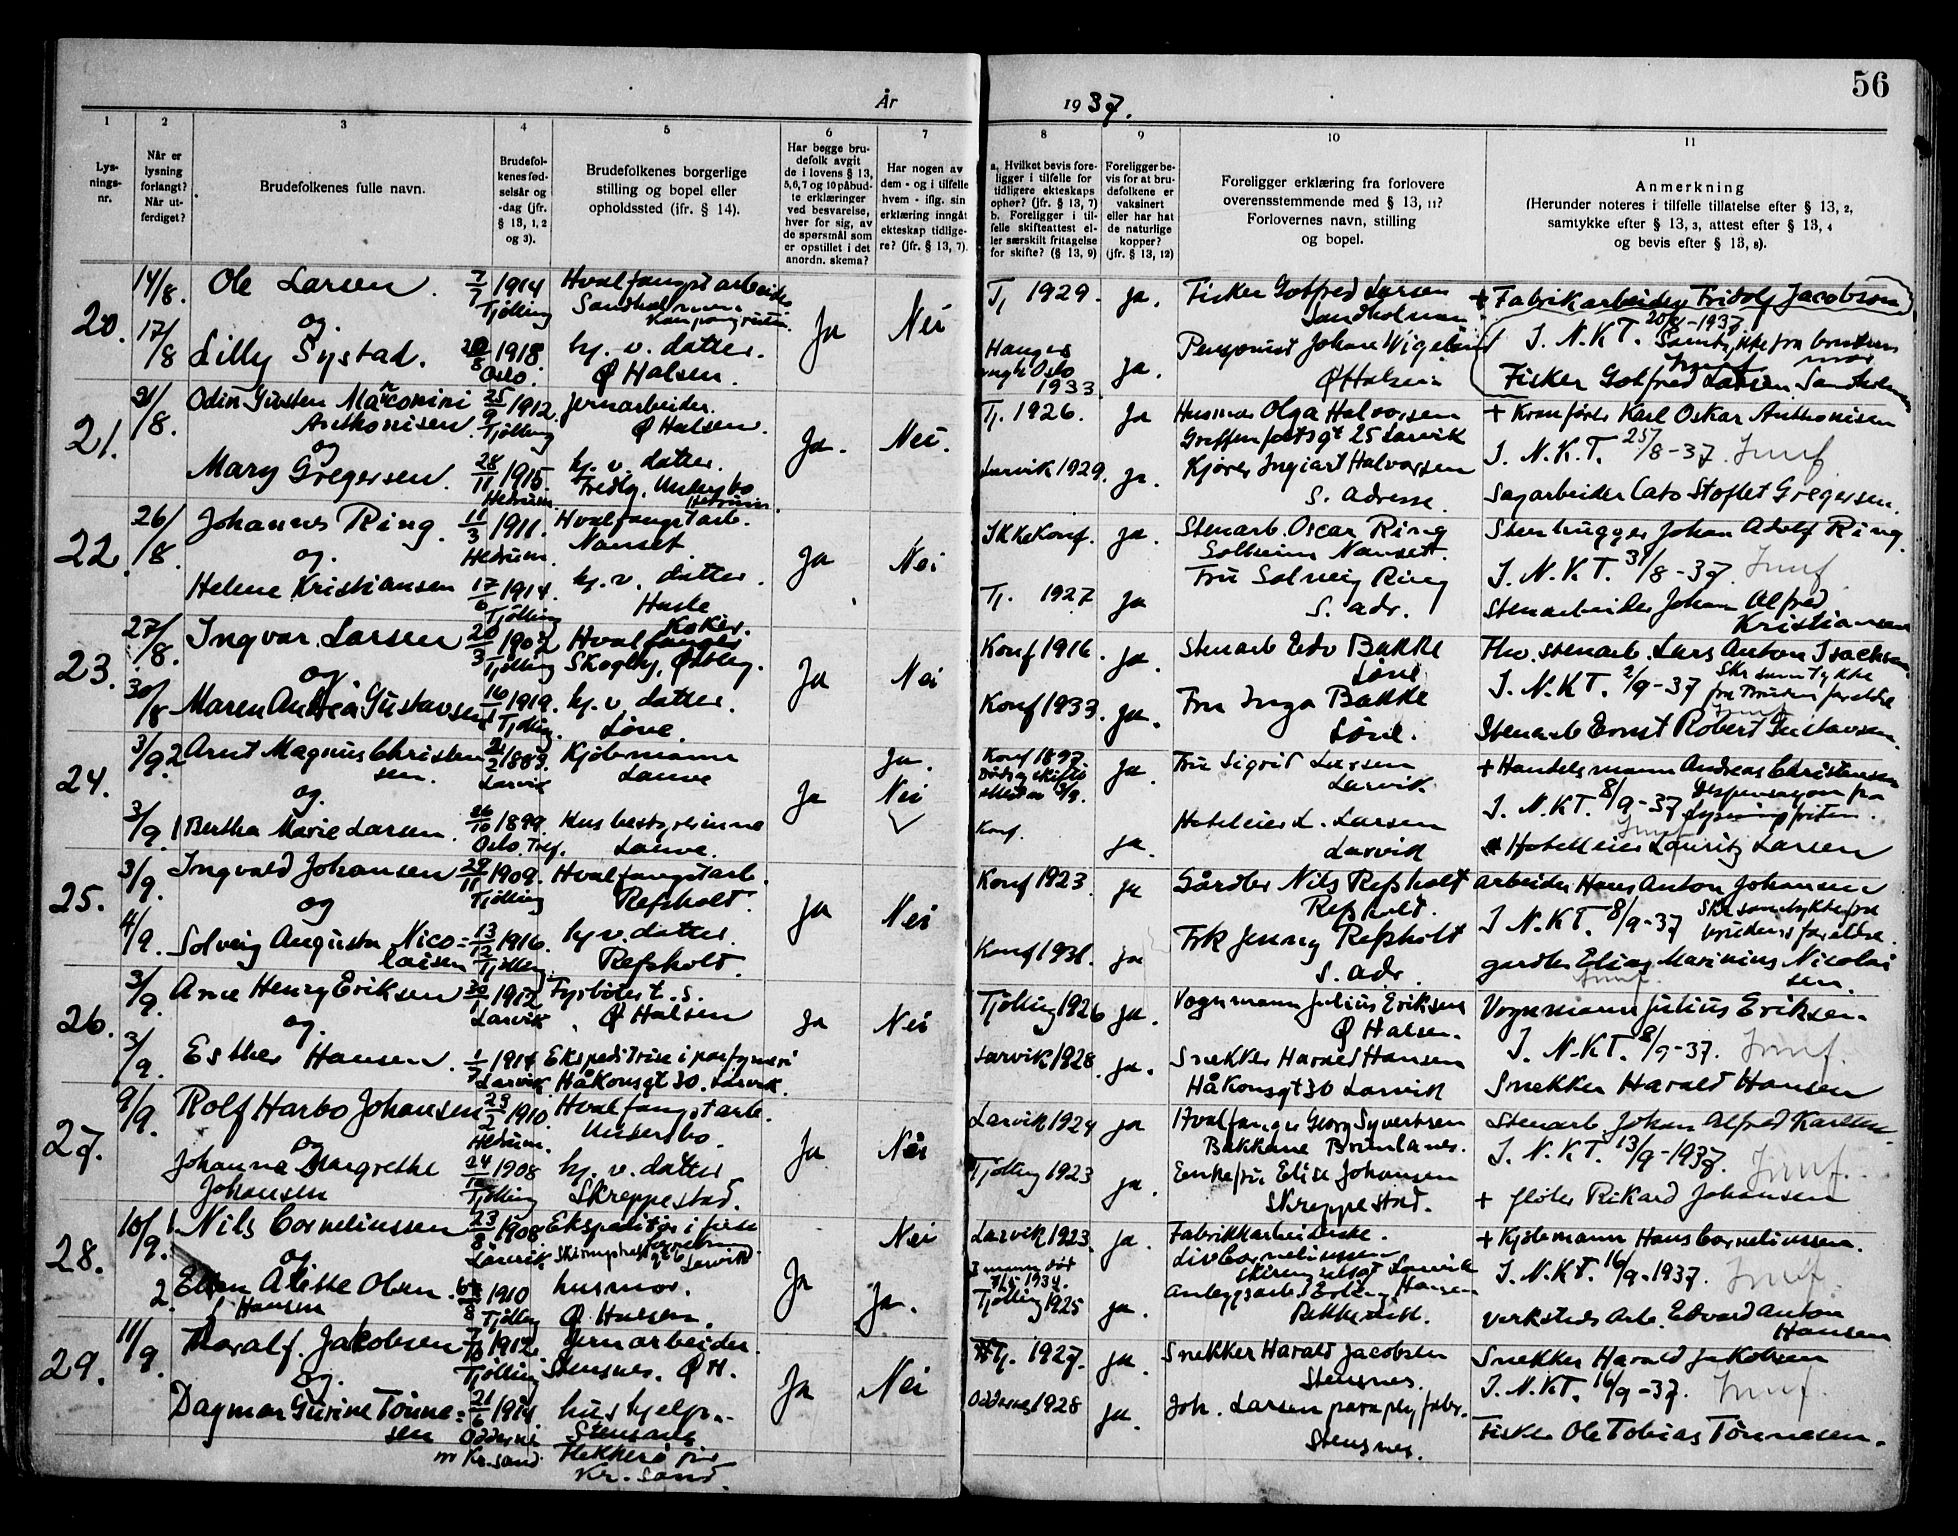 56
År 1937.
1 2 3 4 5 6 7 8 9 10 11
Lys-
nings-
nr.
Når er
lysning
forlangt?
Når ut-
ferdiget?
Brudefolkenes fulle navn.
Brudefol-
kenes fød-
selsår og
-dag (jfr.
§ 13, 1, 2
og 3).
Brudefolkenes borgerlige
stilling og bopel eller
opholdssted (ifr. § 14).
Har begge bru-
defolk avgit
de i lovens § 13,
5, 6, 7 og 10 påbud-
te erklæringer
ved besvarelse,
hver for sig, av
de spørsmål som
er opstillet i det
anordn. skema?
Har nogen av
dem - og i tilfelle
hvem - iflg. sin
erklæring inngåt
ekteskap tidlige-
re? (jfr. § 13, 7).
a. Hvilket bevis fore-
ligger i tilfelle for
tidligere ekteskaps
ophør? (jfr. § 13, 7)
b. Foreligger i til-
felle skifteattest el-
ler særskilt fritagelse
for skifte? (§ 13, 9)
Foreligger be-
vis for at bru-
defolkene er
vaksinert
eller har hat
de naturlige
kopper?
(jfr. § 13, 12)
Foreligger erklæring fra forlovere
overensstemmende med § 13, 11?
Forlovernes navn, stilling
og bopel.
Anmerkning
(Herunder noteres i tilfelle tillatelse efter § 13, 2,
samtykke efter § 13, 3, attest efter § 13, 4
og bevis efter § 13, 8).
20. 14/8. Ole Larsen. 7/7 1914 Hvalfangstarbeider
Tjølling
og.
17/8 Lilly Systad. 1918. hj. v. datter.
Oslo. Ø Halsen.
Ja Nei
Tj 1929. Ja. Fisker Gotfred Larsen
+ Fabrikarbeider Fridolf Jacobson
I. N. K. T. 20/8-1937
Oslo
1933. Ja. Pensjonist Johan Vigeland
Ø Halsen
Fisker Gotfred Larsen
21. 21/8. Odin Gusten Marconini 25/9 1912. Jernarbeider.
Anthonisen. Tjølling Ø Halsen.
og
Mary Gregersen. 28/11 1915. hj. v. datter.
Hedrum. Undersbo
Hedrum.
Ja. Nei.
Tj. 1926. Ja Husmor Olga Halvorsen
25 Larvik
+ Kranfører Karl Oskar Anthonisen
I. N. K. T. 25/8-37.
Larvik 1929. Ja. Kjører Ingvart Halvorsen
s. adresse
Sagarbeider Cato Stoflet Gregersen.
22. 26/8. Johannes Ring. 11/3 1911. Hvalfangstarb.
Hedrum. Nanset.
og.
Helene Kristiansen 17/6 1914. hj. v. datter.
Tjølling
Ja Nei
Ikke Konf. Ja. Stenarb. Oscar Ring
Solheim Nanset.
Stenhugger Johan Adolf Ring.
I. N. K. T. 31/8-37.
Tj. 1927 Ja Fru Solveig Ring
s. adr.
Stenarbeider Johan Alfred
Kristiansen
23. 27/8. Ingvar Larsen 20/3 1902 Hval Koker.
Tjølling Skogly, Østby.
og.
30/8 Maren Andrea Gustavsen 1919. hj. v. datter.
Tjølling. Løve.
Ja Nei
Konf 1916. Ja. Stenarb Edv Bakke
Løve
Fhv. stenarb. Lars Anton Isachsen
I. N. K. T. 2/9-37 Skr samtykke
Konf 1933. Ja. Fru Inga Bakke
Løve.
Stenarb Ernst Robert Gustavsen.
24. 3/9. 2 Arnt Magnus Christen 1883. Kjøbmann
sen. Larvik Lauve
og.
3/9. 1 Bertha Marie Larsen. 26/10 1899. Husbestyrerinne
Oslo. Lauve.
Ja Ja.
Nei
Konf 1897. Ja. Fru Sigrid Larsen
Larvik
+ Handelsmann Andreas Christensen
I. N. K T. 8/9-37 Dispensasjon fra
lysningsfristen.
Konf. Ja. Hoteleier L. Larsen
Larvik
Hotelleier Lauritz Larsen
25. 3/9. Ingvald Johansen 29/11 1909. Hvalfangstarb.
Tjølling Refsholt.
og
4/9. Solveig Augusta Nico= 13/12 1916. hj v. datter.
laisen Tjølling Refsholt.
Ja Nei
Konf 1923. Ja Gårdbr Nils Refsholt
Refsholt.
Arbeider Hans Anton Johansen
I. N. K T. 8/9-37
Konf 1931. Ja Frk Jenny Refsholt
s. adr.
gardbr Elias Marinius Nicolai
sen.
26. 3/9. Arne Henry Eriksen 1912 Fyrbøter t. s.
Larvik. Ø Halsen
og.
3/9. Esther Hansen. 1914 Ekspeditrise i parfymeri
Larvik Håkonsgt 30. Larvik.
Ja Nei
Tjølling 1926 Ja. Vognmann Julius Eriksen
Ø Halsen.
Vognmann Julius Eriksen.
I. N. K T. 8/9-37.
Larvik 1928. Ja. Snekker Harald Hansen
Håkonsgt 30 Larvik
Snekker Harald Hansen
27. 9/9. Rolf Harbo Johansen 23/2 1910. Hvalfangstarb.
Hedrum. Undersbo.
og
Johanne Margrethe 24/ 1908 hj. v. datter
Johansen Tjølling Skreppestad.
Ja Nei
Larvik 1924 Ja Hvalfanger Georg Syvertsen
Bakkane Brunlanes.
Stenarb. Johan Alfred Karlsen.
I. N. K T. 13/9-1937.
Tjølling 1923 Ja. Enkefru Elise Johansen
Skreppestad.
+ fløter Rikard Johansen
28. 10/9. 1. Nils Corneliussen 23/8 1908. Ekspeditør i
Larvik Larvik
og
2. Ellen Alette Olsen. 1910 husmor.
f Hansen Tjølling Ø Halsen.
Ja Nei
Ja.
Larvik 1923. Ja. Fabrikkarbeiderske.
Liv Corneliussen
Larvik
+ Kjøbmann Hans Corneliussen.
I. N. K T. 16/9-1937.
1934.
Tjølling 1925 Ja. Anleggsarb Erling Hansen
Verksteds Arb. Edvard Anton
Hansen
29. 11/9 Thoralf. Jakobsen 1912. Jernarbeider.
Tjølling Stensnes. Ø H.
og.
Dagmar Gurine Tønne= 21/6 1914. hushjelp.
sen Oddernes Stensnes
m Kr. sand Flekkerø pr
Kr. sand.
Ja Nei
Tj. 1927. Ja. Snekker Harald Jacobsen
Stensnes.
Snekker Harald Jakobsen
I. N. K T. 16/9-37.
Oddernes 1928 Ja. Joh. Larsen paraplyfabr.
Stensnes.
Fisker Ole Tobias Tønnesen.